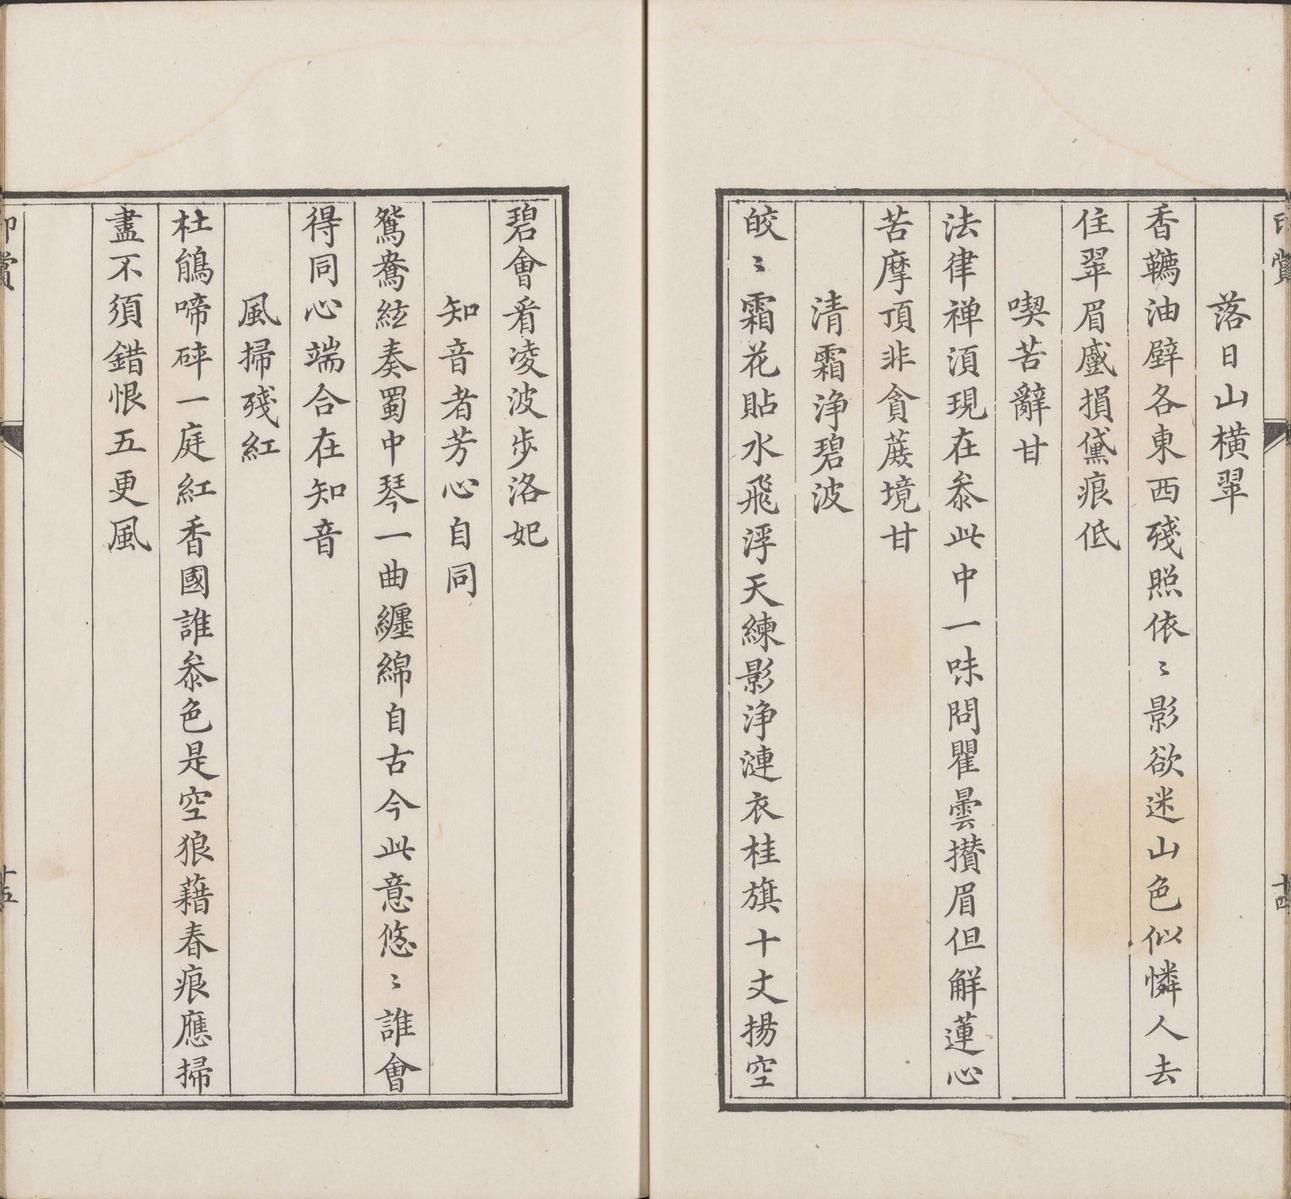 落日山橫翠
香韉油壁各東西殘照依〻影欲迷山色似憐人去
住翠眉蹙損黛痕低
喫苦辭甘
法律禅須現在叅此中一味問瞿曇攢眉但解蓮心
苦摩頂非貪蔗境甘
清霜浄碧波
皎〻霜花貼水飛浮天練影浄漣衣桂旗十丈揚空
十四
碧會看凌波步洛妃
知音者芳心自同
鴛鴦絃奏蜀中琴一曲纏綿自古今此意悠〻誰會
得同心端合在知音
風掃殘紅
杜鵑啼碎一庭紅香國誰叅色是空狼藉春痕應掃
盡不須錯恨五更風
印賞
十五